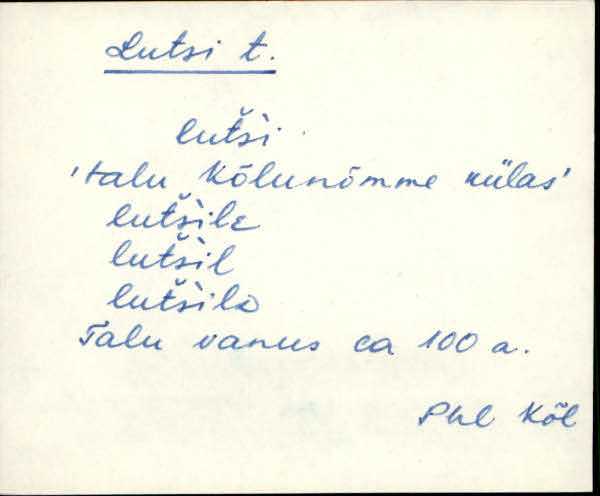 Lutsi t.
lutši
'talu Kõlunõmme külas'
lutšile
lutšil
lutšilə
Talu vanus ca 100 a.
Phl Kõl